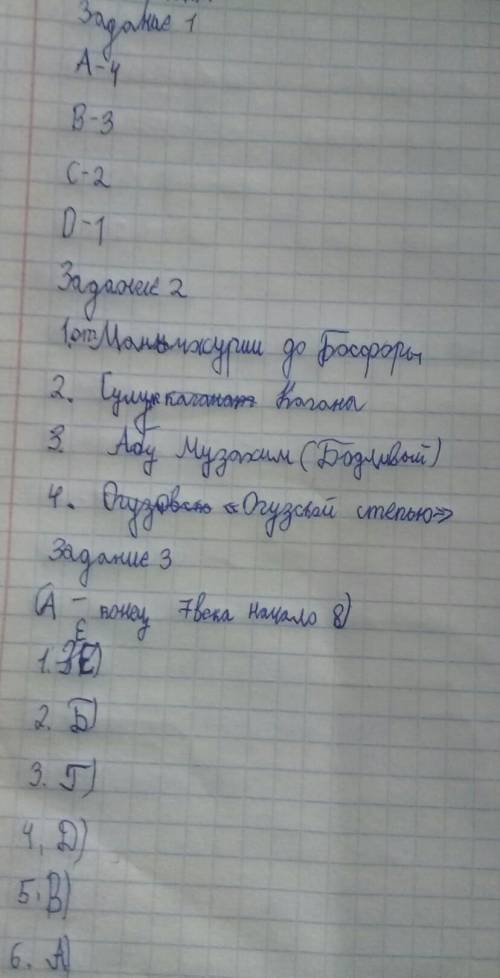 Задание 1
А-4
В-3
С-2
D-1
Задание 2
1. от Маньчжурии до Босфоры
2. Сулук Каганы
3. Абу Музахим (Бодливый)
4. «Огузской степью»
Задание 3
(А - конец 7 века начало 8)
1. Е)
2. Б)
3. Г)
4. Д)
5. В)
6. А)